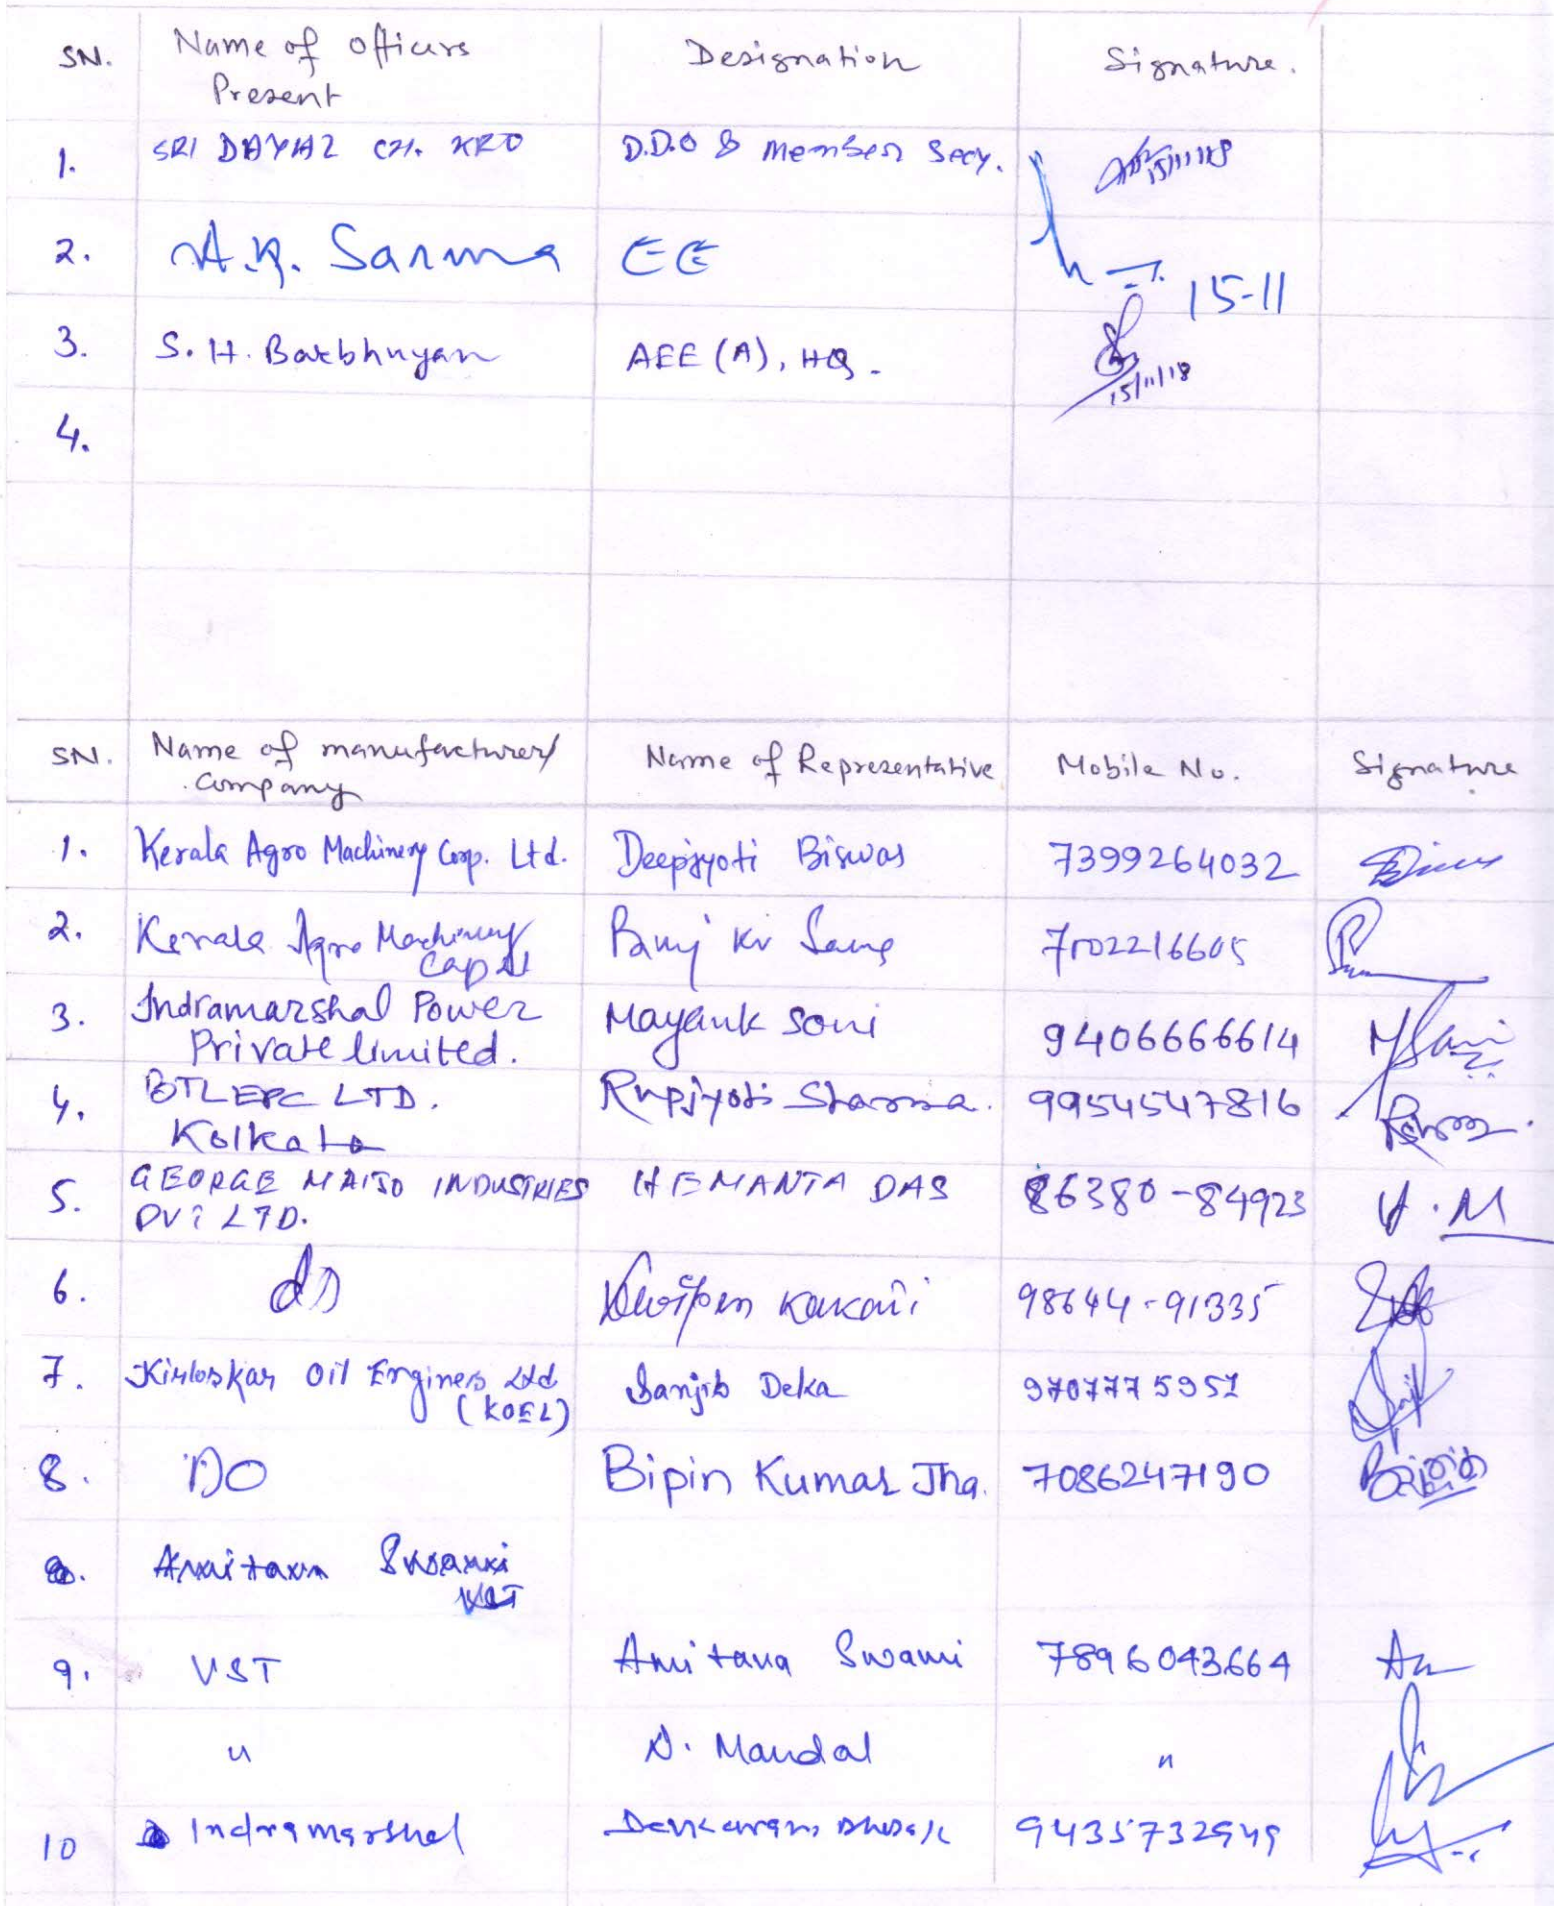 SN. Name of officers Present Designation Signature.
1. SRI DAYAL CH. KRO D.D.O & Member Secy. 15/11/18
2. A.K. Sarma EE 15-11
3. S. H. Barbhuyan AEE (A), HQ. 15/11/18
4.
SN. Name of manufacturer/ Company Name of Representative Mobile No. Signature
1. Kerala Agro Machinery Corp. Ltd. Deepjyoti Biswas 7399264032
2. Kerala Agro Machinery 7002216605
3. Indramarshal Power Private limited. Mayank Soni 9406666614 MSoni
4. BTL EPC LTD. Kolkata Rupjyoti Sharma. 9954547816
5. GEORGE MAIJO INDUSTRIES PVT LTD. HEMANTA DAS 86380-84923 H.M
6. do Dwipen Kakati 98644-91335
7. Kirloskar Oil Engines Ltd (KOEL) Sanjib Deka 9707775951
8. DO Bipin Kumar Jha. 7086247190
Amitava Swami VST
9. VST Amitava Swami 7896043664
" D. Mandal "
10 Indramarshal 9435732949